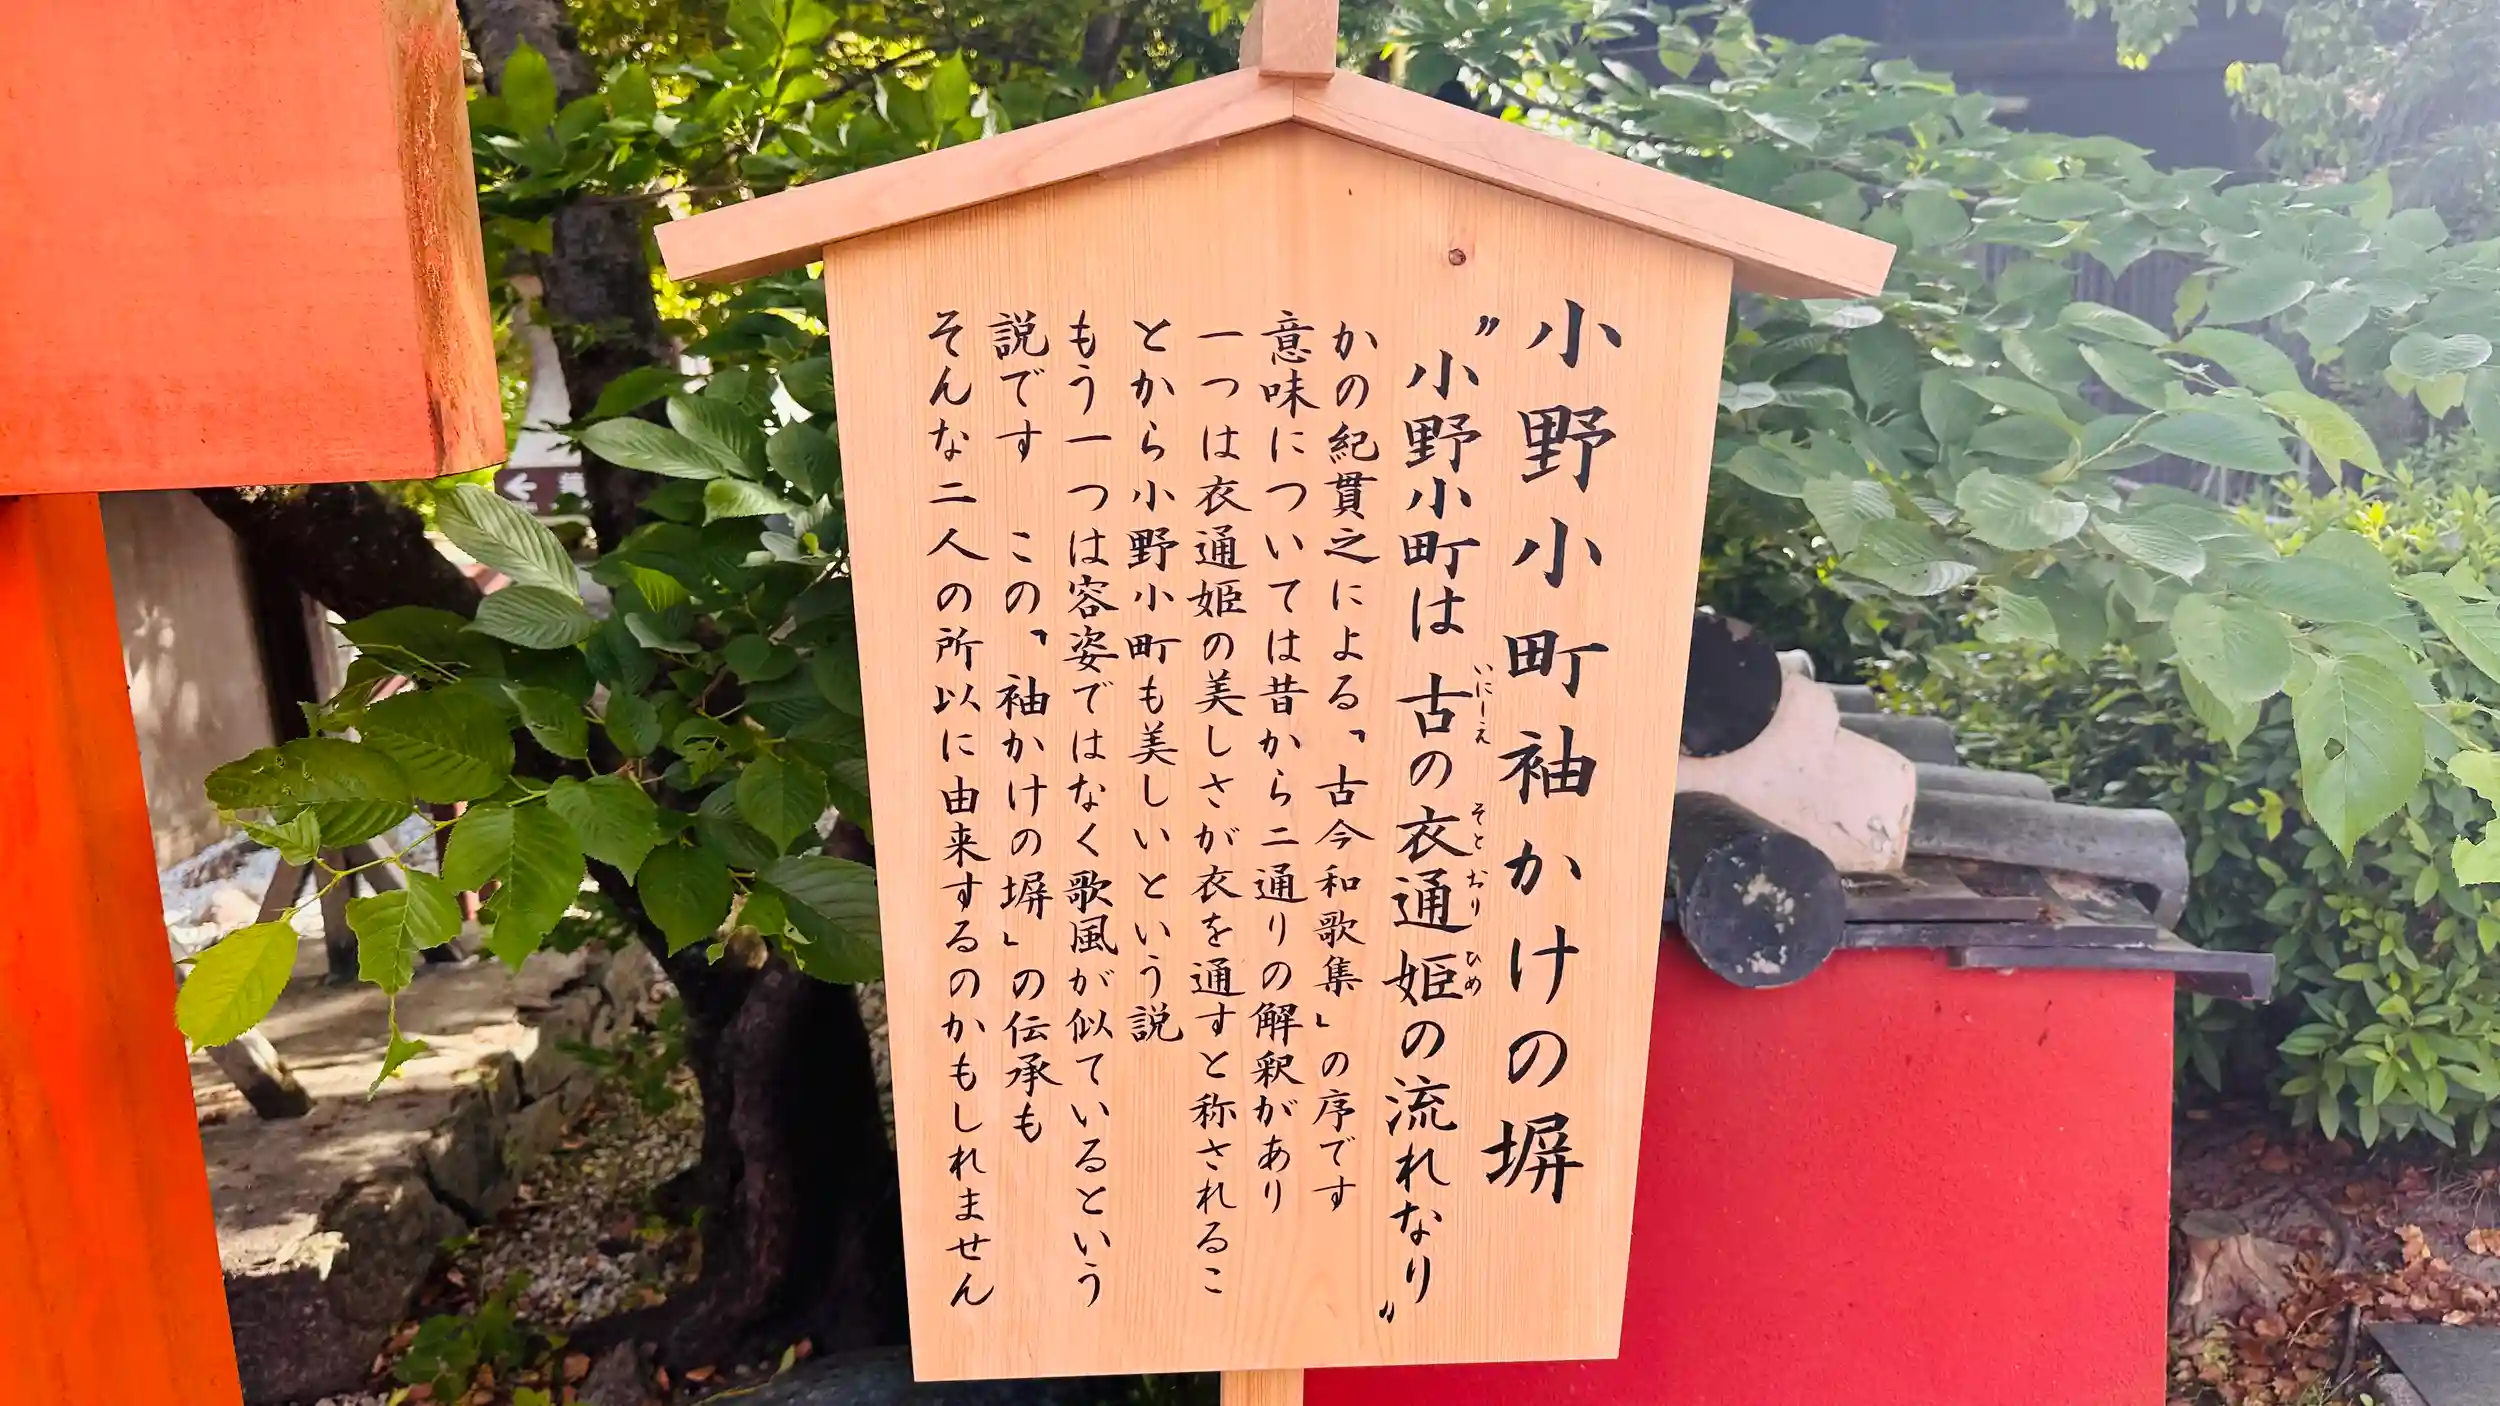 小野小町袖かけの塀
〝小野小町は古の衣通姫の流れなり〟
いにしえ
そとおりひめ
かの紀貫之による「古今和歌集」の序です
意味については昔から二通りの解釈があり
一つは衣通姫の美しさが衣を通すと称されるこ
とから小野小町も美しいという説
もう一つは容姿ではなく歌風が似ているという
説です　この「袖かけの塀」の伝承も
そんな二人の所以に由来するのかもしれません